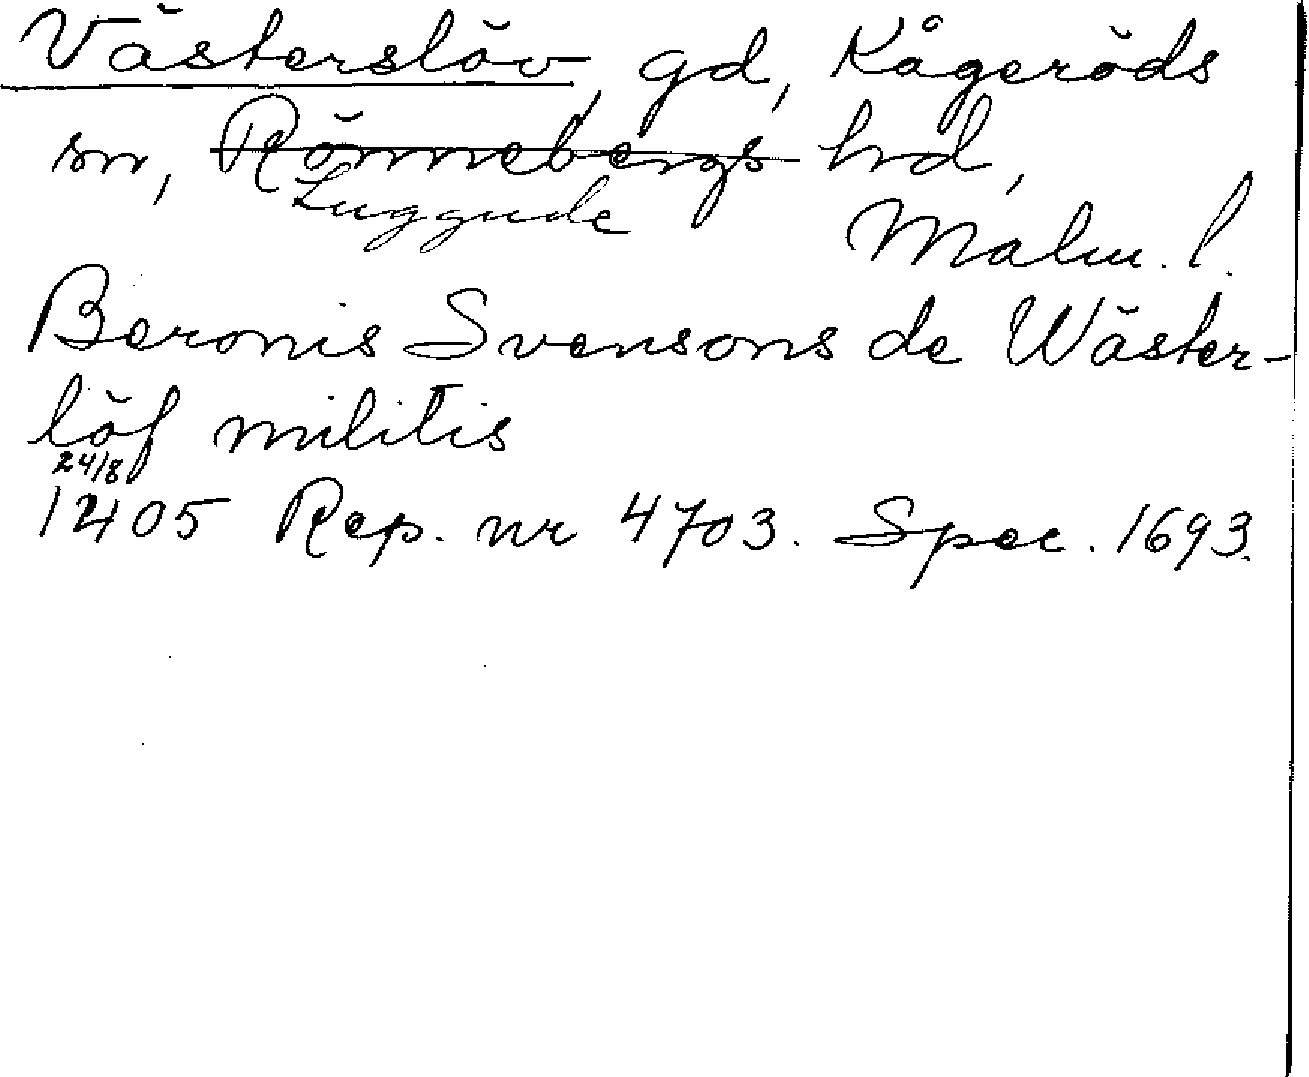 Västerslöv, gd, Kågeröds
sn, Rönnebergs hrd,
Luggude
Malm. l.
Beronis Svensons de Wäster-
löf militis
24/8
1405 Rep. nr 4703. Spec. 1693.